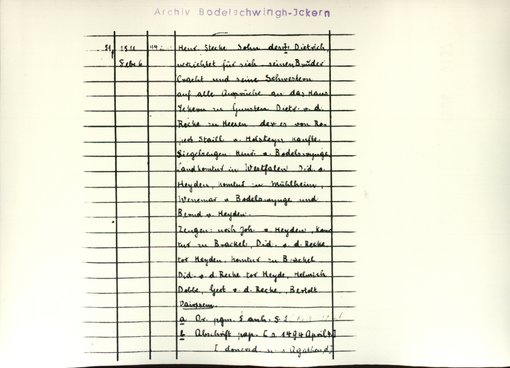 Archiv Bodelschwingh-Ickern
Henr. Stecke Sohn des Dietrich
verzichtet für sich, seinen Bruder
Cracht und seine Schwestern
auf alle Ansprüche an das Haus
Ickern zu Gunsten Dietr. v. d.
Recke zu Heeren der es von
Staill v. Holsteyn kaufte.
Siegelzeugen Henr. v. Bodelswynge
Landkomtur in Westfalen Did. v.
Heyden, komtur in Mühlheim,
Wenemar v. Bodelswynge und
Bernd v. Heyden.
Zeugen: noch Joh. v. Heyden, kom
tur zu Brackel, Did. v. d. Recke
tor Heyden, komtur zu Brackel
Did. v. d. Recke tor Heyde, Heinrich
Gert v. d. Recke, Bertolt
a Or. pgm. 5 anh. S.
b Abschrift pap. 1494 April